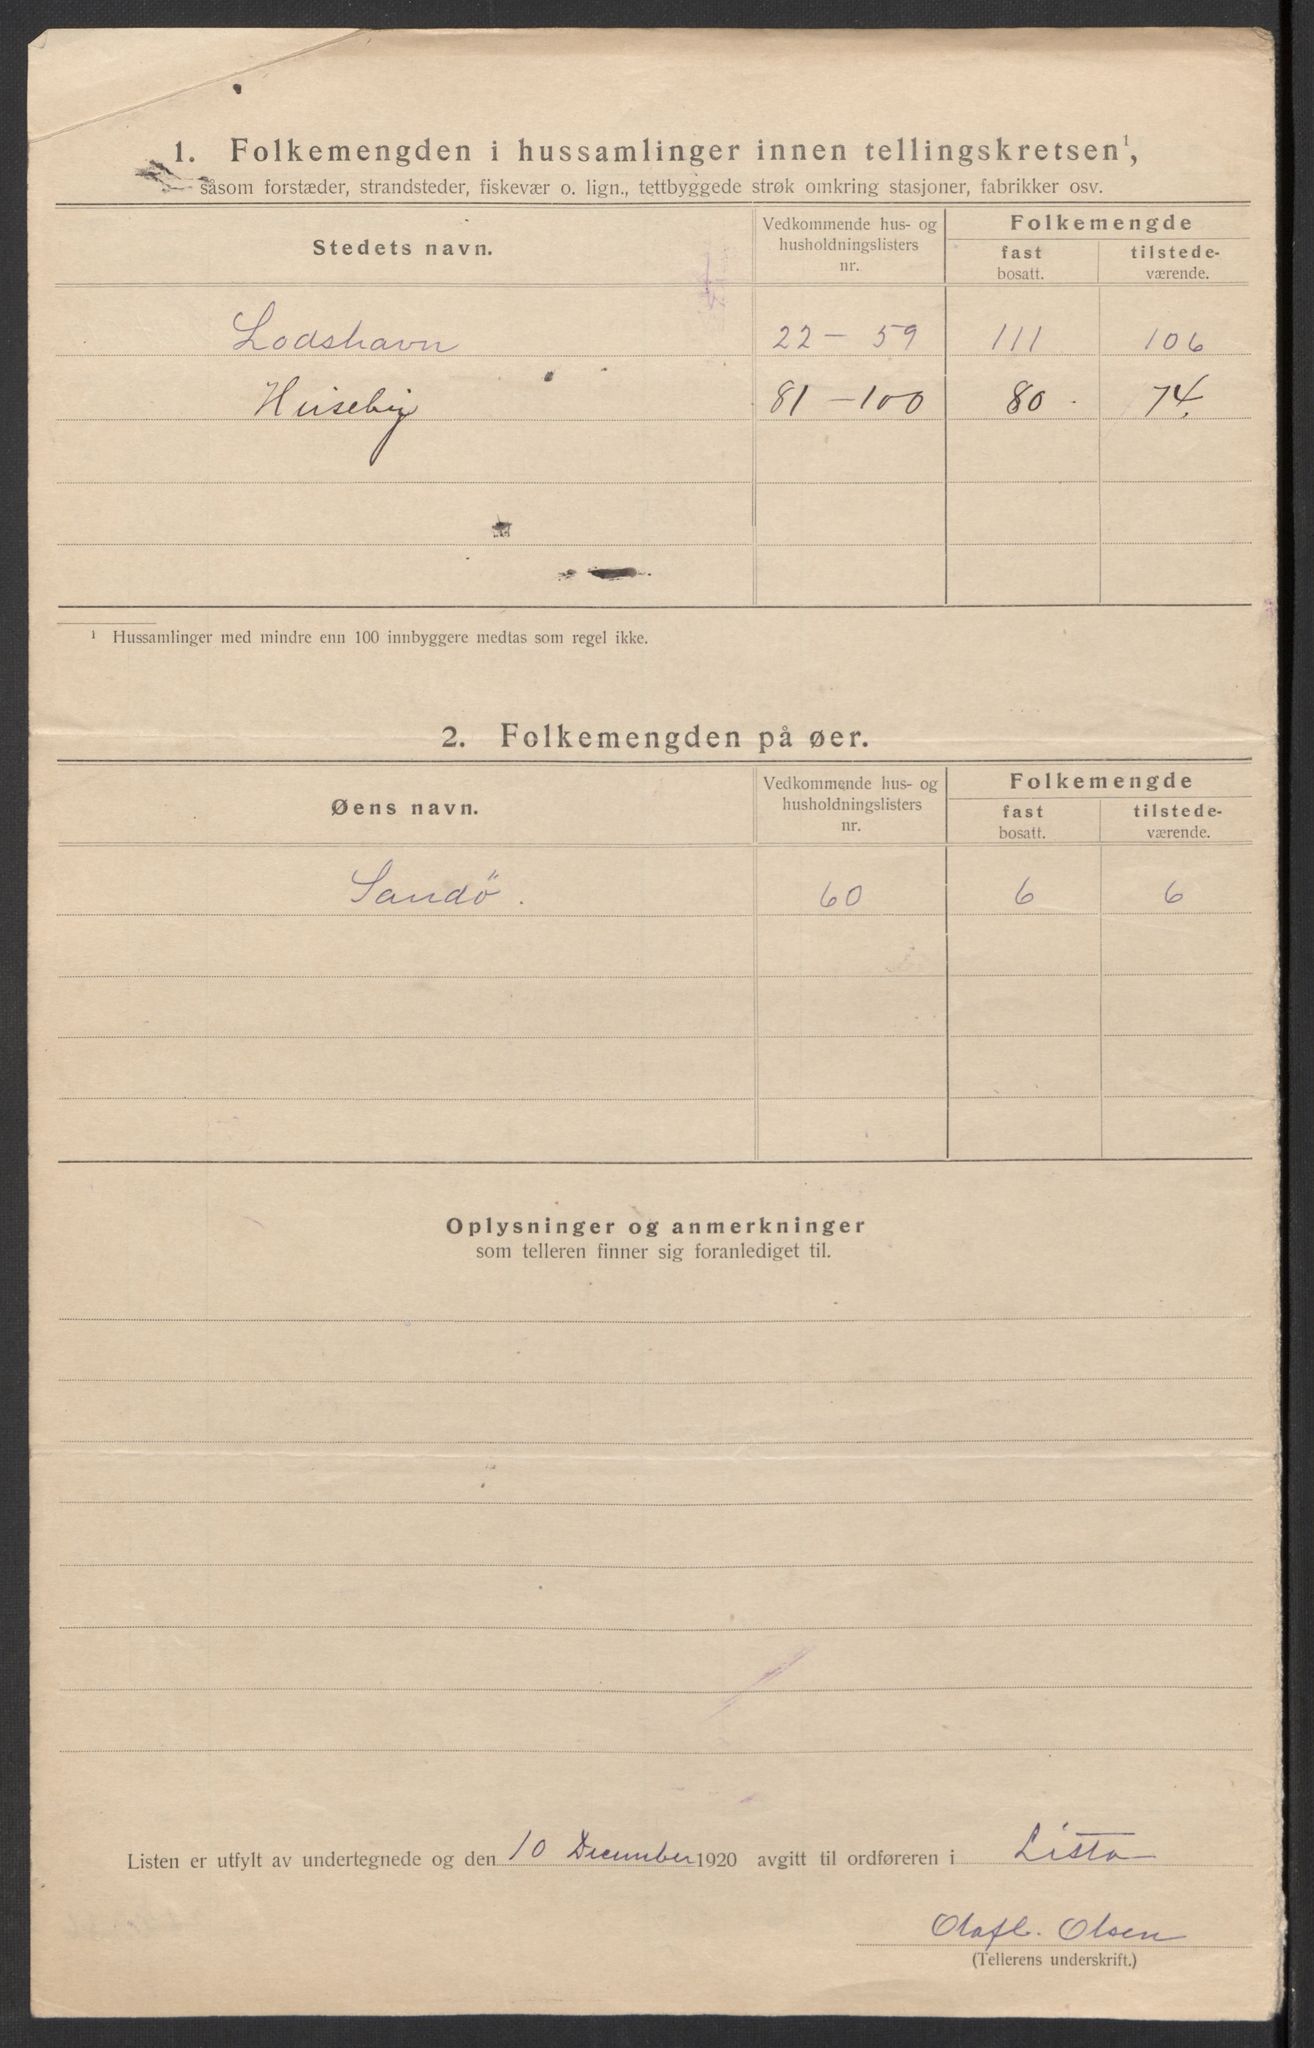 1. Folkemengden i hussamlinger innen tellingskretsen¹,
såsom forstæder, strandsteder, fiskevær o. lign., tettbyggede strøk omkring stasjoner, fabrikker osv.
Stedets navn. Vedkommende hus- og husholdningslisters nr. Folkemengde
fast bosatt. tilstede-værende.
Lodshavn 22 – 59 111 106
Huseby 81 – 100 80 74.
¹ Hussamlinger med mindre enn 100 innbyggere medtas som regel ikke.
2. Folkemengden på øer.
Øens navn. Vedkommende hus- og husholdningslisters nr. Folkemengde
fast bosatt. tilstede-værende.
Sandö. 60 6 6
Oplysninger og anmerkninger
som telleren finner sig foranlediget til.
Listen er utfylt av undertegnede og den 10 December 1920 avgitt til ordføreren i Lista
Olaf L. Olsen
(Tellerens underskrift.)